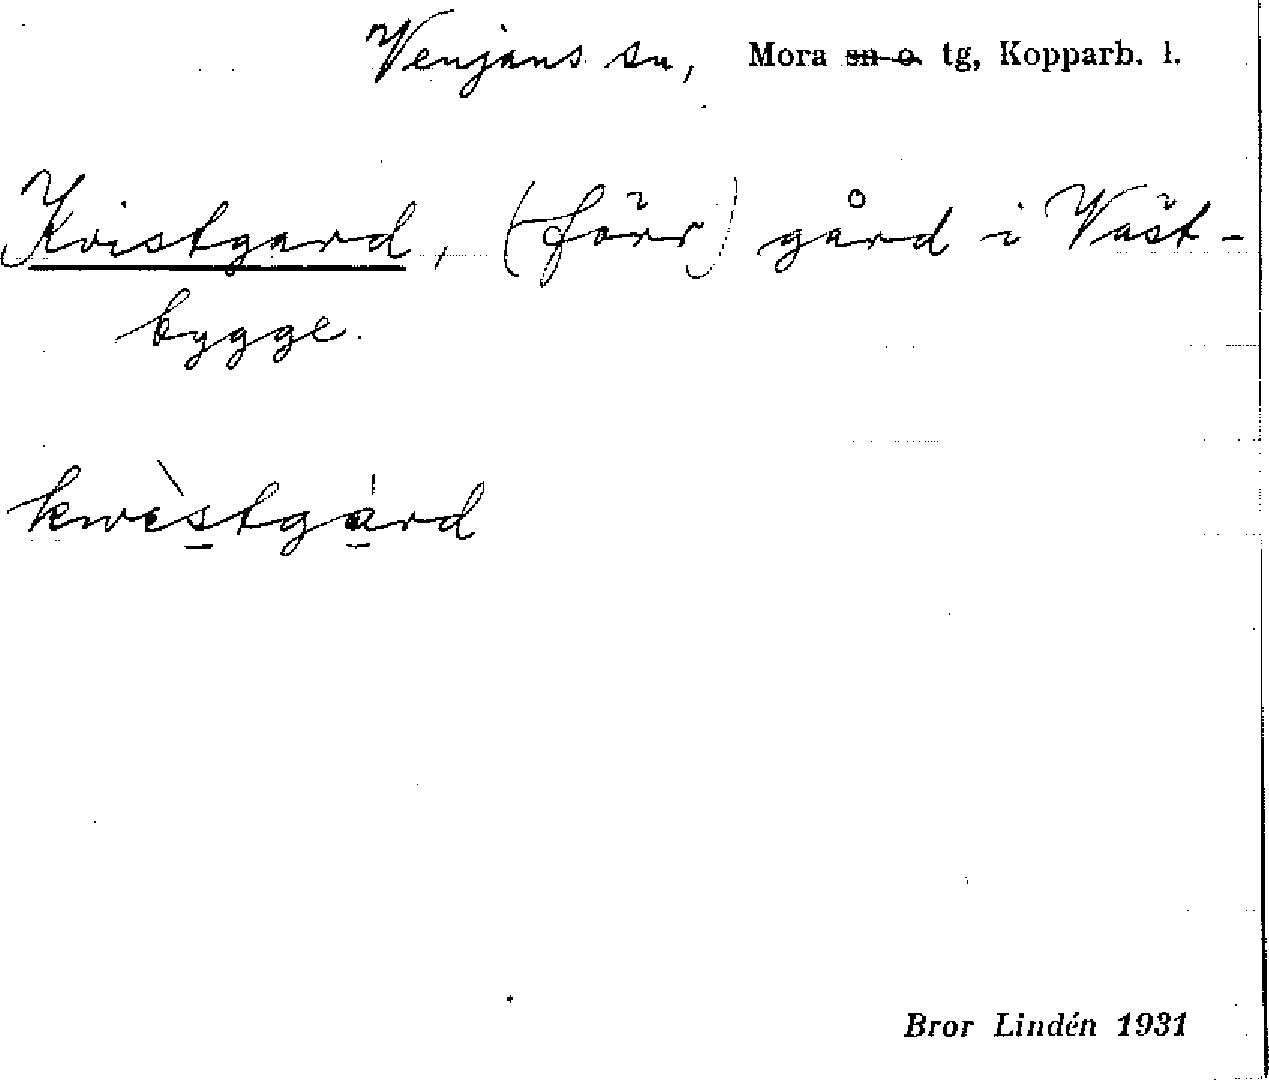 Venjans sn, Mora sn o. tg, Kopparb. l.
Kvistgard, (förr) gård i Väst-
bygge.
kwèstgárd
Bror Lindén 1931